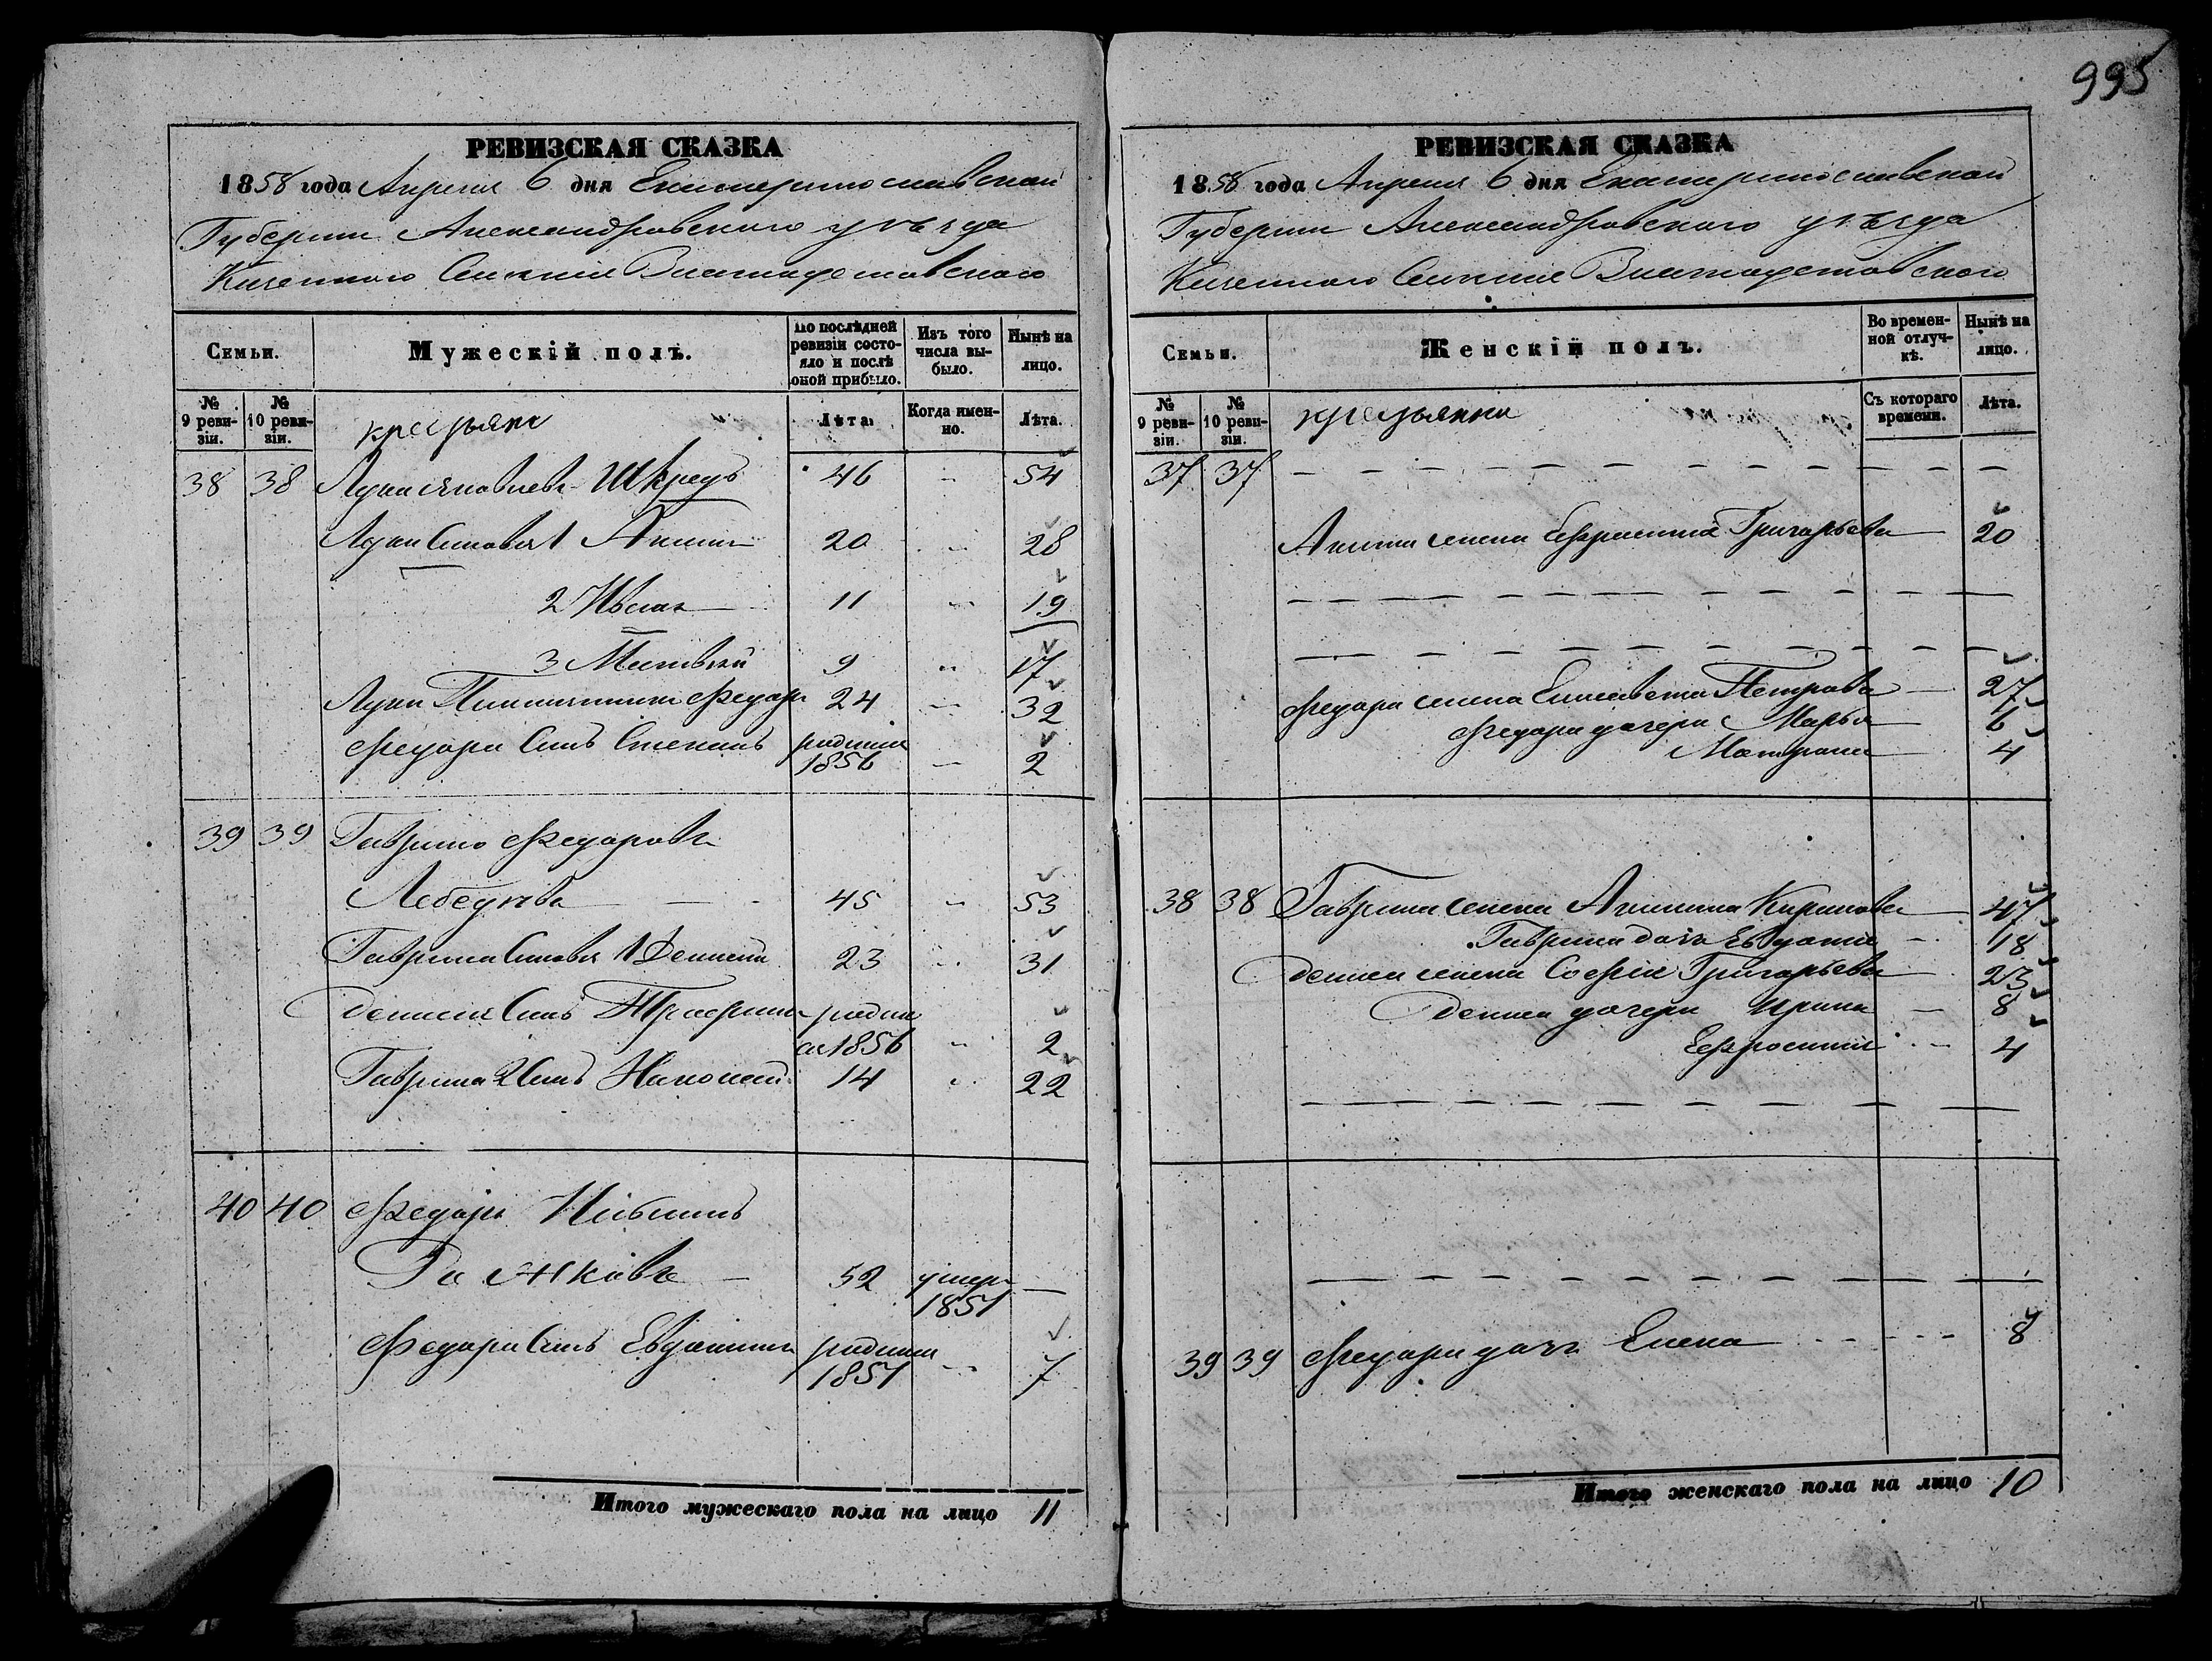 995
РЕВИЗСКАЯ СКАЗКА
1858 года Апреля 6 дня Екатеринославской
Губернии Александровского уѣзда
Казенного Селения
Семьи.
Мужескій полъ.
По послѣдней ревизіи состояло и послѣ оной прибыло.
Изъ того числа выбыло.
Нынѣ на лицо.
№ 9 ревизіи.
№ 10 ревизіи.
крестьяне
Лѣта.
Когда именно.
Лѣта.
38 38 Лука Яковлевъ Шкредъ 46 " 54
Луки Сыновья 1 Акимъ 20 " 28
2 Иванъ 11 " 19
3 Матвей 9 " 17
Луки Племянникъ Федоръ 24 " 32
Федора Сынъ Степанъ родился 1856 — 2
39 39 Гаврило Федоровъ
Лебедювъ 45 " 53
Гаврила Сыновья 1 Денисъ 23 " 31
Дениса Сынъ родился 1856 " 2
Гаврила 2 Сынъ 14 " 22
40 40 Федоръ Ивановъ
52 умеръ 1851 —
Федора Сынъ Евдокимъ родился 1851 — 7
Итого мужескаго пола на лицо 11
РЕВИЗСКАЯ СКАЗКА
1858 года Апреля 6 дня Екатеринославской
Губернии Александровского уѣзда
Казенного Селения
Семьи.
Женскій полъ.
Во временной отлучкѣ.
Нынѣ на лицо.
№ 9 ревизіи.
№ 10 ревизіи.
крестьянки
Съ котораго времени.
Лѣта.
37 37 — — — — —
Акима жена Ефросиния Григорьева — 20
— — — — —
— — — — —
Федора жена Елисавета Петрова — 27
Федора дочери Марья — 6
Матрона — 4
38 38 Гаврила жена Акилина Кирилова — 47
Гаврила дочь Евдокия — 18
Дениса жена София Григорьева — 23
Дениса дочери Ирина — 8
Ефросиния — 4
— — — — —
— — — — —
39 39 Федора дочь Елена — — — 8
Итого женскаго пола на лицо 10